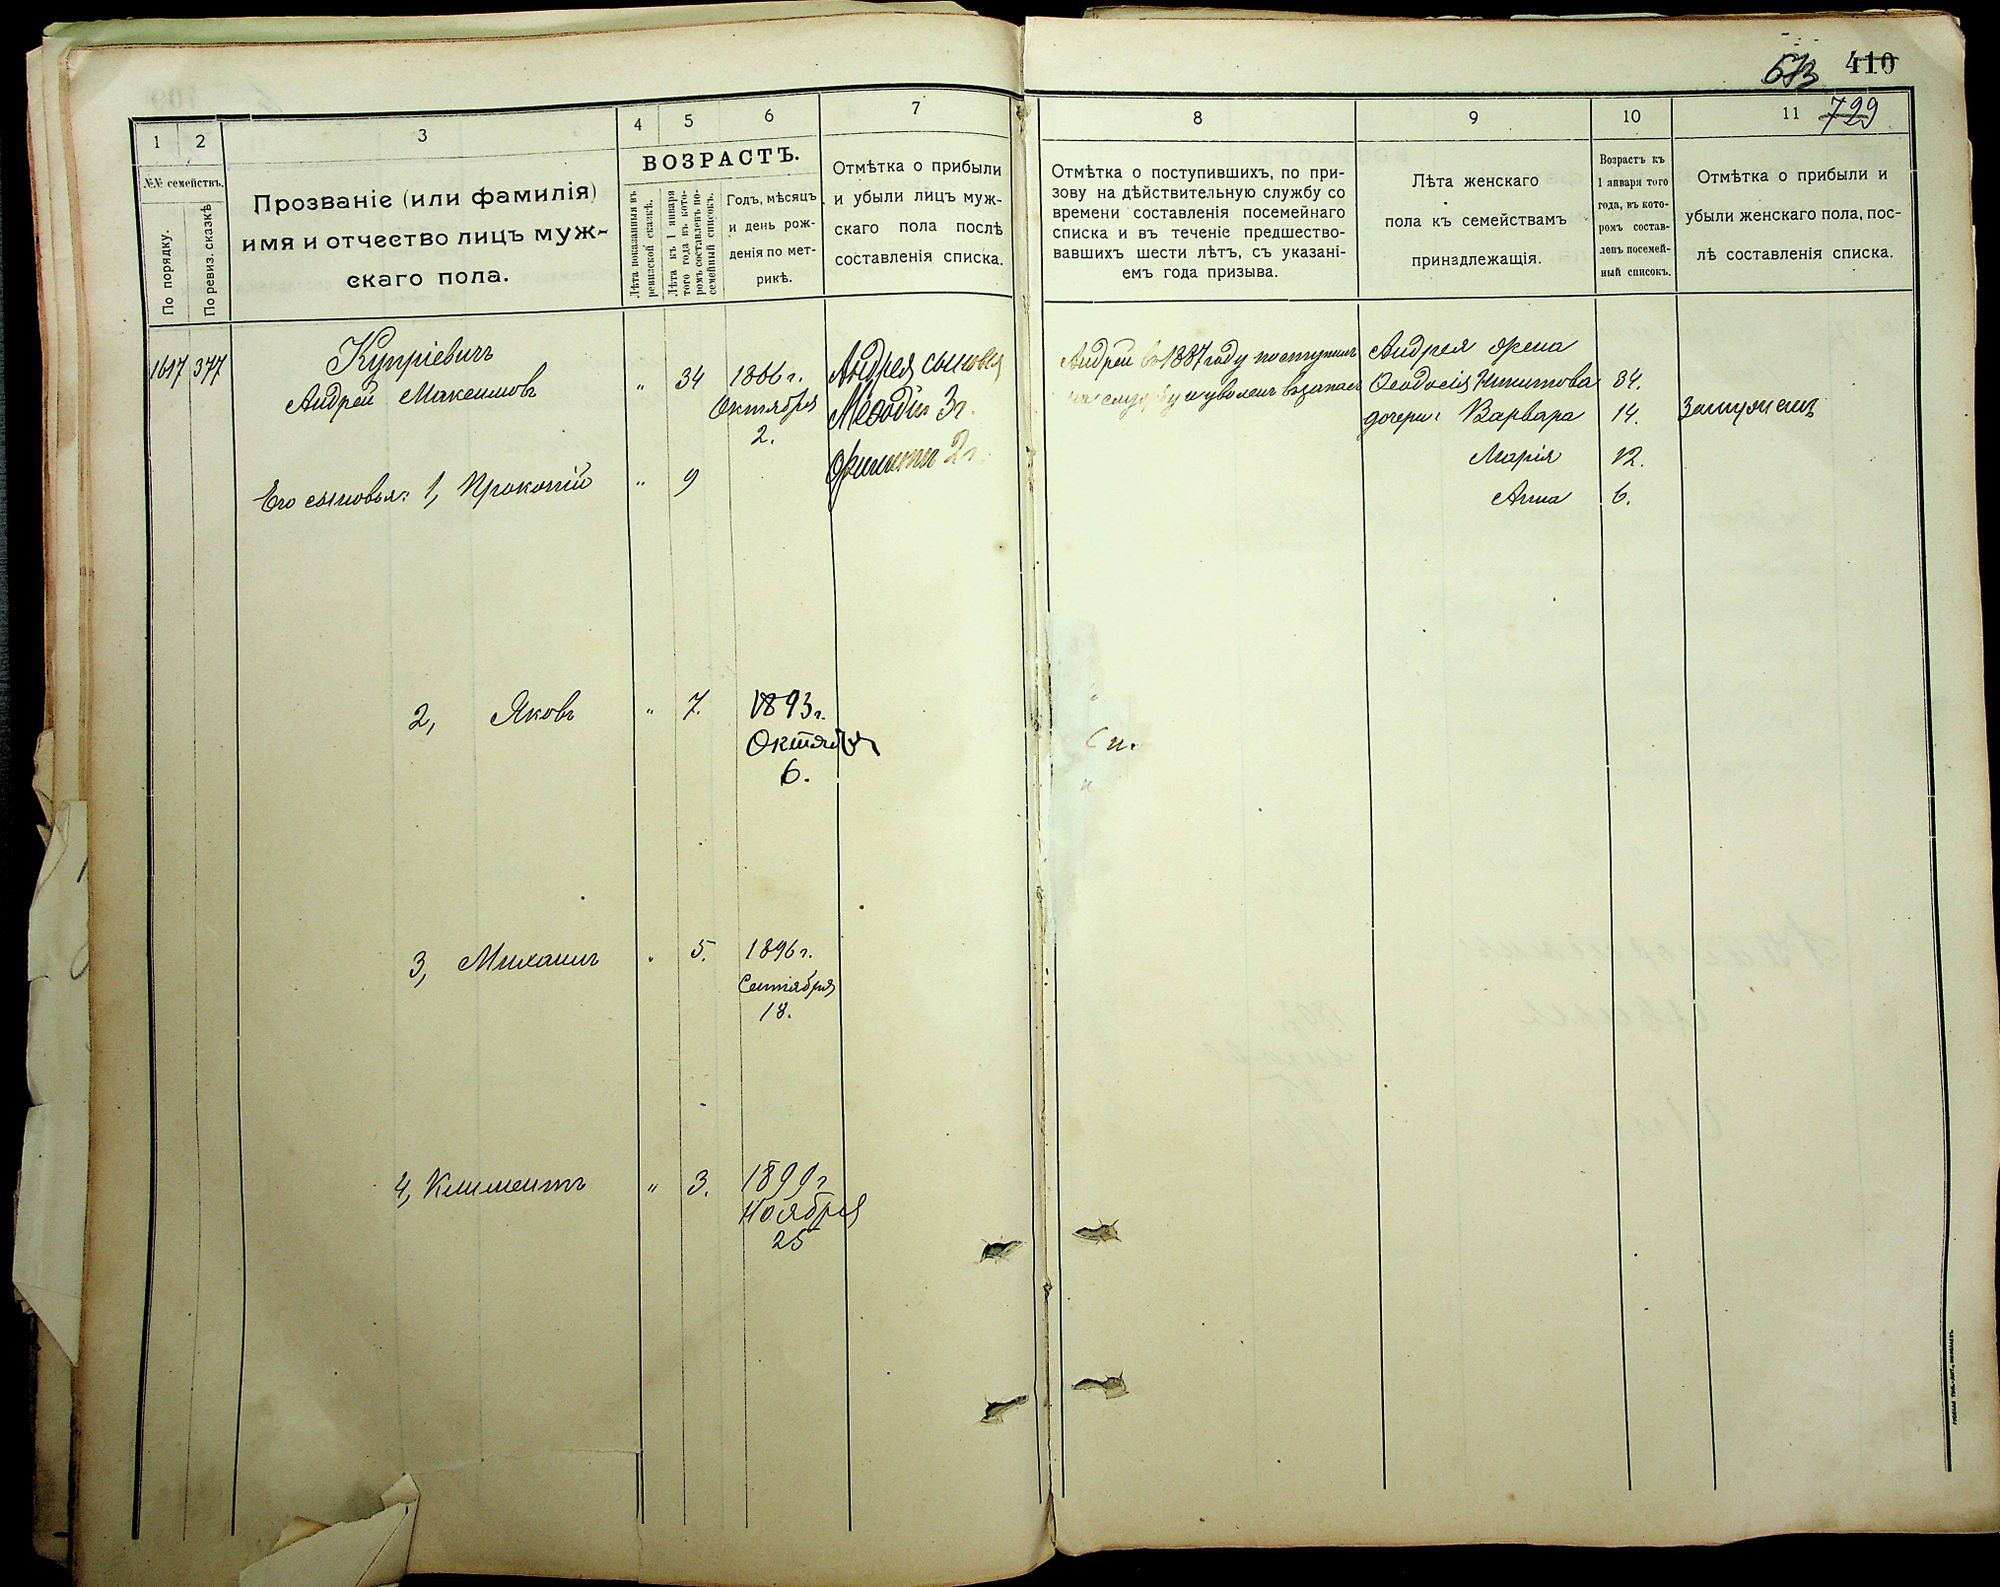 410
729
1
2
3
4
5
6
7
№№ семействъ.
По порядку.
По ревиз. сказкѣ
Прозваніе (или фамилія)
имя и отчество лицъ муж-
скаго пола.
ВОЗРАСТЪ.
Лѣта показанныя въ
ревизской сказкѣ.
Лѣта къ 1 января
того года въ кото-
ромъ составленъ по-
семейный списокъ.
Годъ, мѣсяцъ
и день рож-
денія по мет-
рикѣ.
Отмѣтка о прибыли
и убыли лицъ муж-
скаго пола послѣ
составленія списка.
1617 377
Купріевичъ
Андрей Максимовъ
" 34
1866 г.
Октября
2.
Андрея сыновья
Меѳодій 3 г.
2 г.
Его сыновья: 1, Прокопій " 9
2, Яковъ " 7.
1893 г.
Октября
6.
3, Михаилъ " 5.
1896 г.
Сентября
18.
4, Климентъ " 3.
1899 г
Ноября
25
8
9
10
11
Отмѣтка о поступившихъ, по при-
зову на дѣйствительную службу со
времени составленія посемейнаго
списка и въ теченіе предшество-
вавшихъ шести лѣтъ, съ указані-
емъ года призыва.
Лѣта женскаго
пола къ семействамъ
принадлежащія.
Возрастъ къ
1 января того
года, въ кото-
ромъ состав-
ленъ посемей-
ный списокъ.
Отмѣтка о прибыли и
убыли женскаго пола, пос-
лѣ составленія списка.
Андрей въ 1887 году поступилъ
на службу и уволенъ въ запасъ
Андрея жена
Ѳеодосія Никитова 34.
дочери: Варвара 14. Замужемъ
Марія 12.
Анна 6.